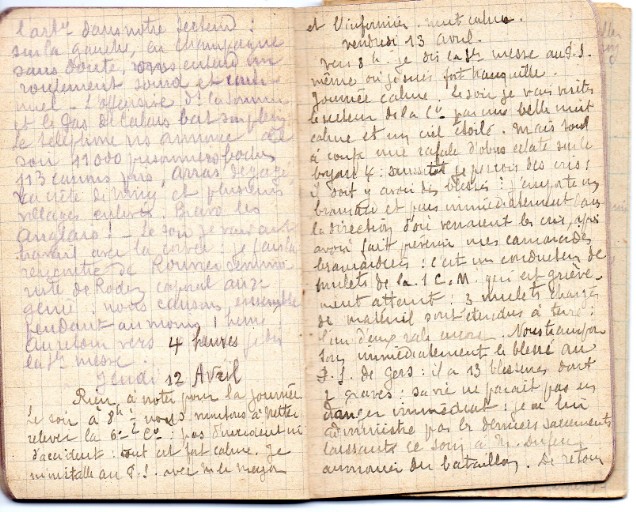 l'artie dans notre secteur :
sur la gauche, en Champagne
sans doute, nous entend un
roulement sourd et conti-
nuel - L'offensive de la Somme
et le Pas de Calais bat son plein
le téléphone ns annonce ce
soir 11000 prisonniers boches
113 canons pris, Arras dégagé
la crête de Vimy et plusieurs
villages enlevés. Bravo les
anglais ! - le soir je vais au
travail avec la corvée : je fais la
rencontre de Rouvier sémina
riste de Rodez caporal au 2e
génie : nous causons ensemble
pendant au moins 1 heure
au retour vers 4 heures je dis
la Ste messe.
Jeudi 12 Avril
Rien à noter pour la journée
Le soir à 8h : nous montons à
relever la 6e Cie : pas d'incident ni
d'accident : tout est fort calme. Je
m'installe au P.S. avec m. le major
et l'infirmier. nuit calme.
Vendredi 13 avril.
Vers 8 h. je dis la Ste messe au P.S.
même où je suis fort tranquille.
Journée calme. le soir je vais visiter
le secteur de la Cie par une belle nuit
calme et un ciel étoilé. Mais tout
à coup une rafale d'obus éclate sur le
boyau 4 : aussitôt je perçois des cris ;
il doit y avoir des blessés : j'emporte un
brancard et pars immédiatement dans
la direction d'où venaient les cris, après
avoir fait prévenir mes camarades
brancardiers : c'est un conducteur de
mulets de la 1 C.M. qui est griève-
ment atteint : 3 mulets chargés
de matériel sont étendus à terre :
l'un d'eux râle encore. Nous transpor
tons immédiatement le blessé au
P.S. de Gers : il a 13 blessures dont
2 graves : sa vie ne paraît pas en
danger immédiat : je ne lui
administre pas les derniers sacrements
laissant ce soin à M.
aumônier du bataillon. De retour